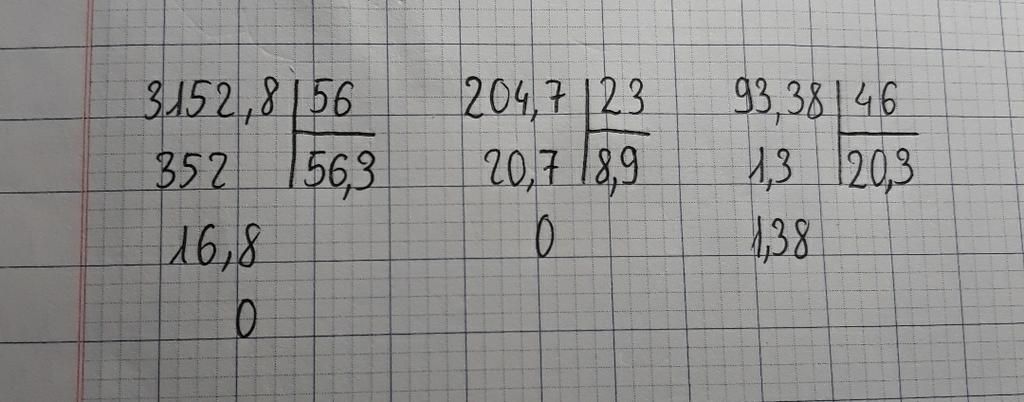 3152,8 56 204,7 23 93,38 46
352 56,3 20,7 8,9 1,3 20,3
16,8 0 1,38
0